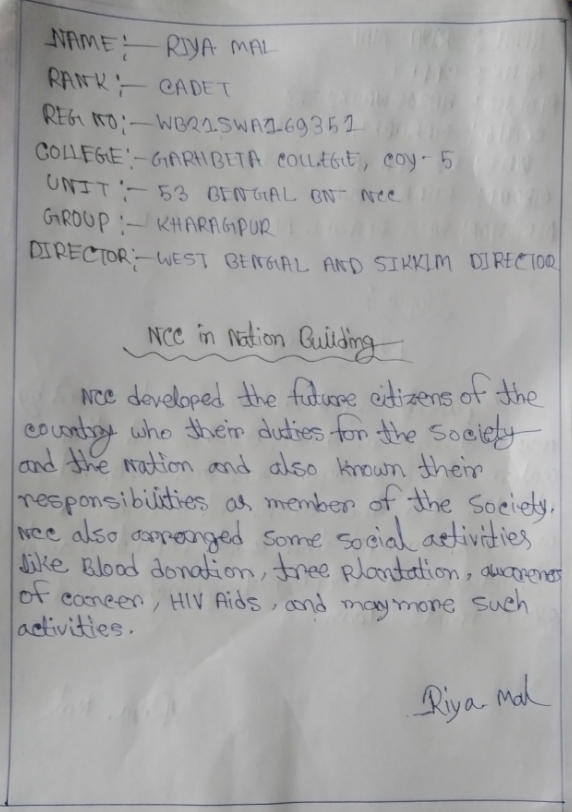 NAME:- RIYA MAL
RANK:- CADET
REG NO:- WB21SWA169351
COLLEGE:- GARHBETA COLLEGE, COY-5
UNIT:- 53 BENGAL BN NCC
GROUP:- KHARAGPUR
DIRECTOR:- WEST BENGAL AND SIKKIM DIRECTOR
NCC in Nation Building
NCC developed the future citizens of the
country who their duties for the society
and the Nation and also known their
responsibilities as member of the Society.
NCC also arranged some social activities
like Blood donation, tree plantation, awareness
of cancer, HIV Aids, and may more such
activities.
Riya Mal